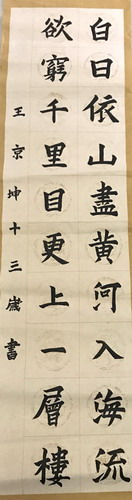 白日依山盡黃河入海流
欲窮千里目更上一層樓
王京坤十三歲書